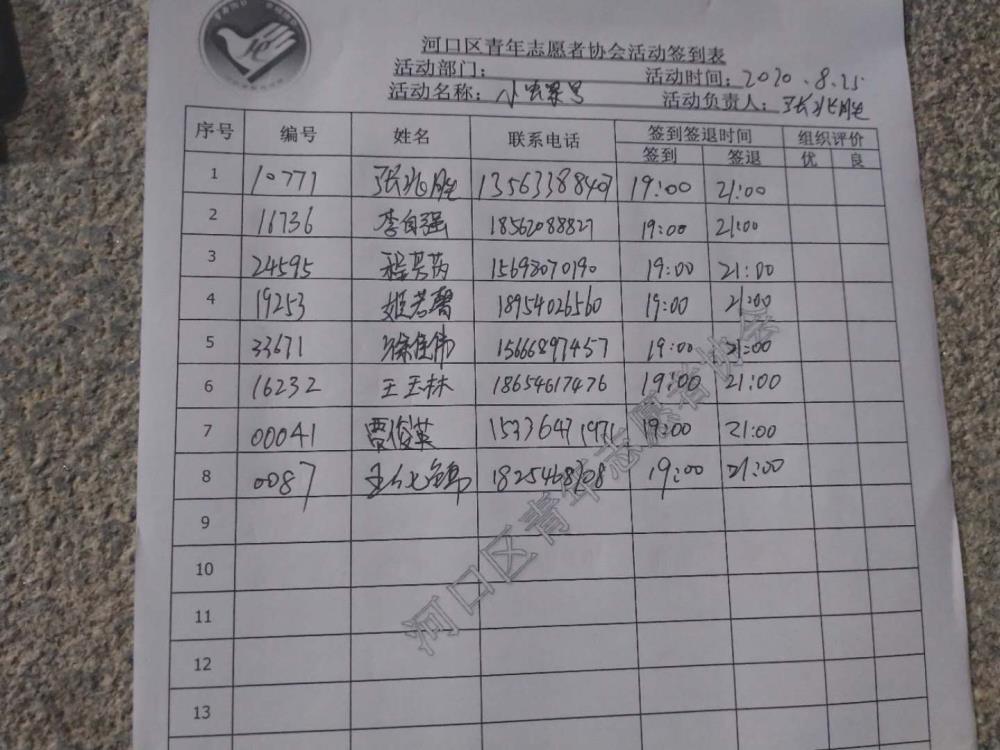 河口区青年志愿者协会活动签到表
活动部门： 活动时间：2020.8.25
活动名称：小 活动负责人：张兆胜
序号 编号 姓名 联系电话 签到签退时间 组织评价
签到 签退 优 良
1 10771 张兆胜 13563388407 19:00 21:00
2 16736 李自强 18562088827 19:00 21:00
3 24595 15698070190 19:00 21:00
4 19253 姬若馨 18954026560 19:00 21:00
5 33671 徐佳伟 15666897457 19:00 21:00
6 16232 王玉林 18654617476 19:00 21:00
7 00041 贾俊英 19:00 21:00
8 0087 19:00 21:00
9
10
11
12
13
河口区青年志愿者协会